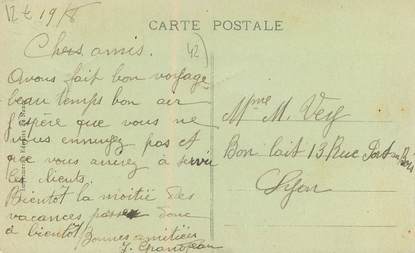 CARTE POSTALE
19/8
42
Chers amis.
Avons fait bon voyage
beau temps bon air
J'espère que vous ne
vous ennuyez pas et
que vous arrivez à servir
les clients.
Bientôt la moitié des
vacances passée donc
à bientôt Bonnes amitiées
Mme M. Vey
Bon lait 13 Rue
Lyon